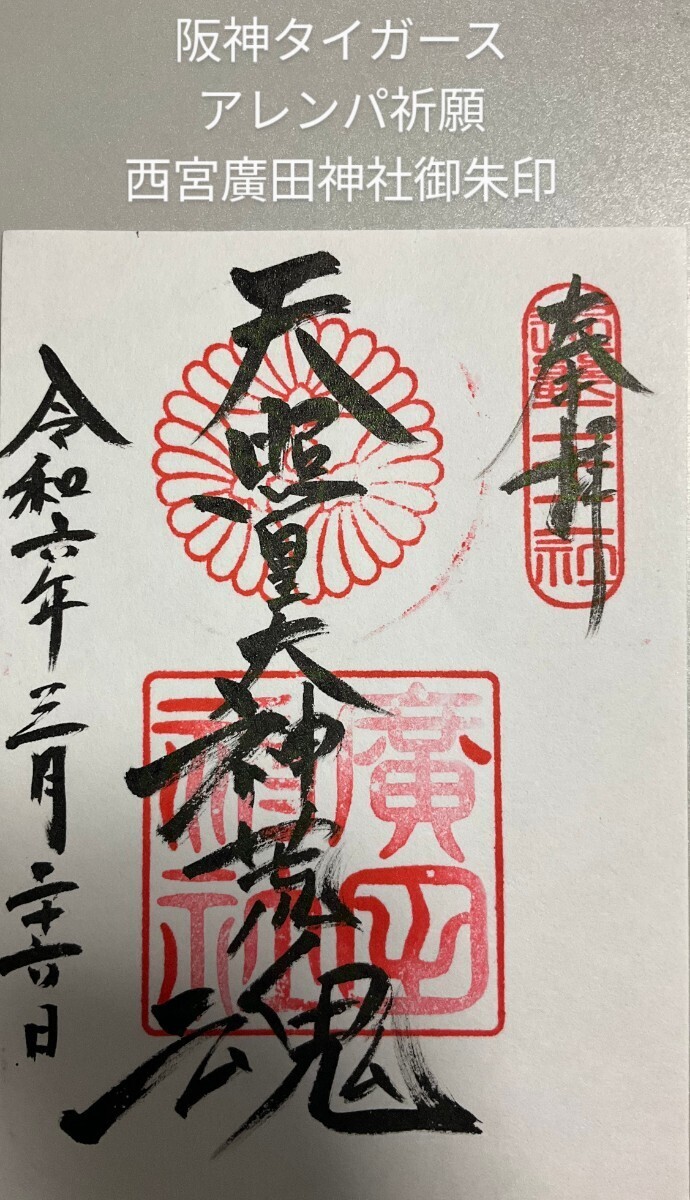 阪神タイガース
アレンパ祈願
西宮廣田神社御朱印
奉拝
天照皇大神荒魂
廣田
神社
令和六年三月二十六日